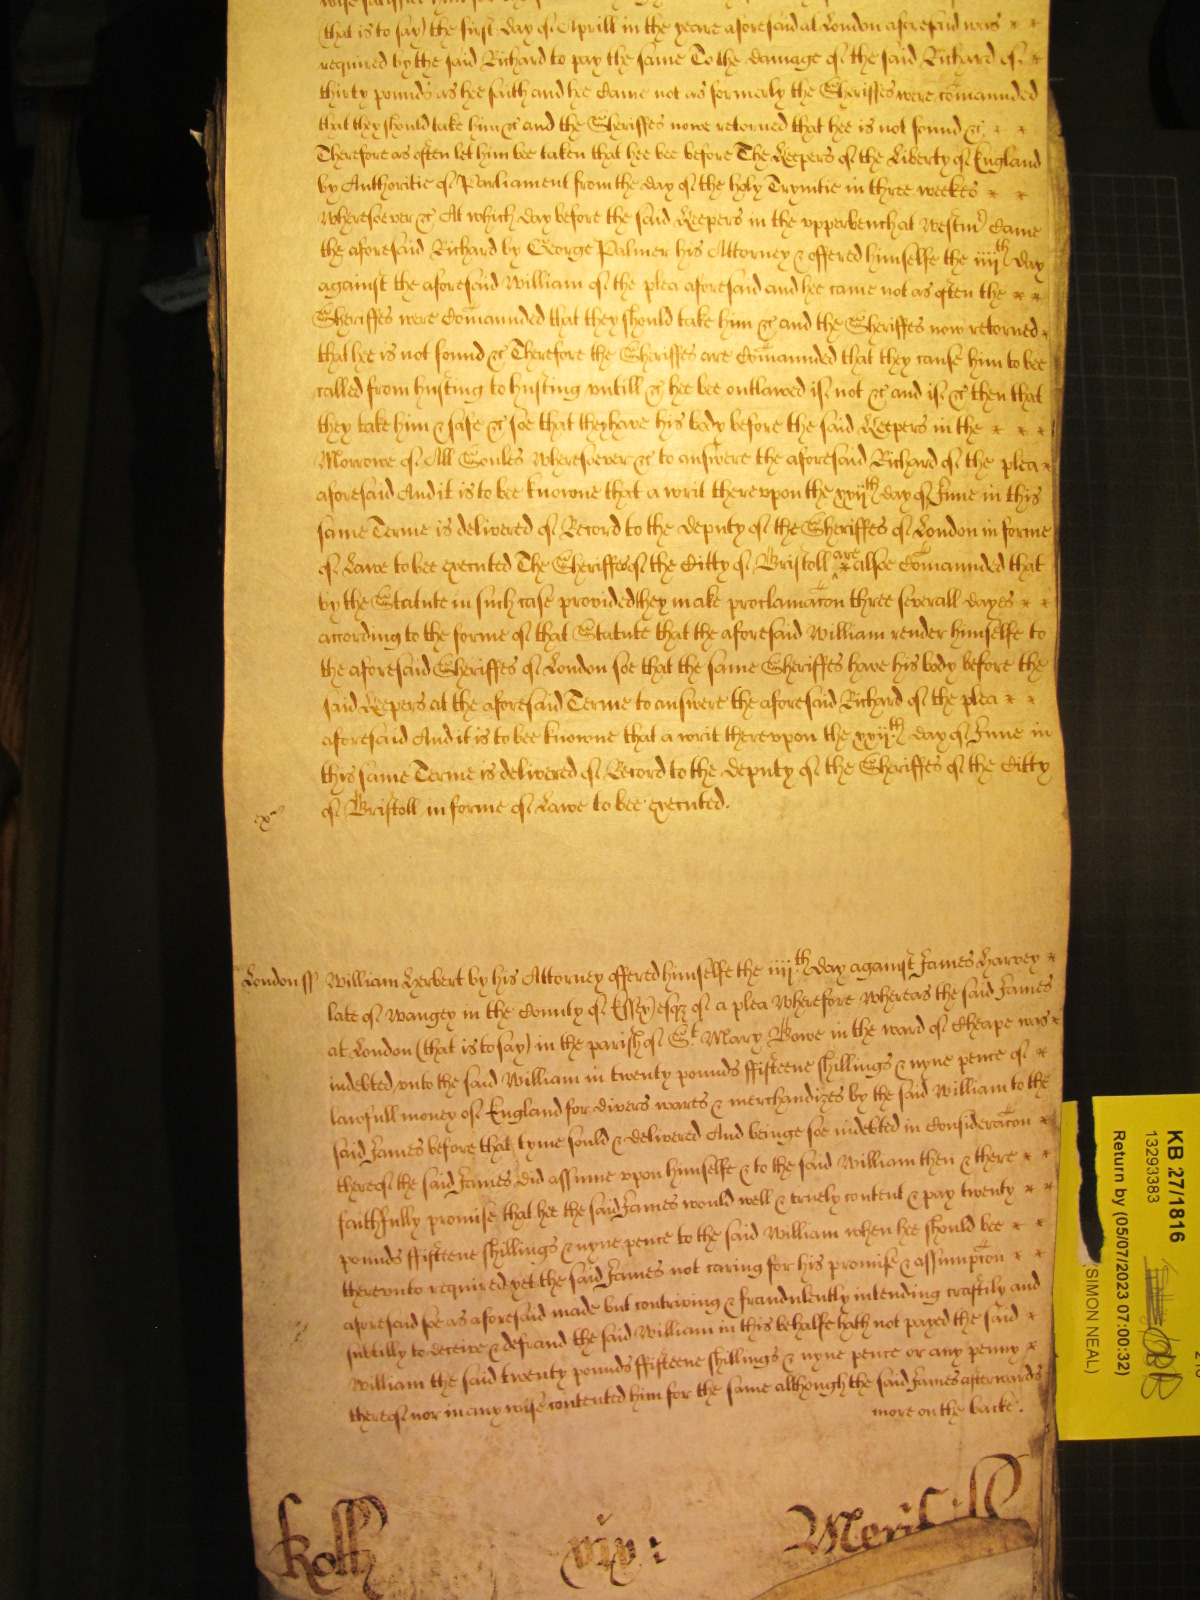 wise satisfied him for
(that is to say) the first day of Aprill in the yeare aforesaid at London aforesaid was
required by the said Richard to pay the same To the damage of the said Richard of
thirty pounds as hee saith and he Came not as formerly the Sheriffes were comaunded
that they should take him &c and the Sheriffes nowe retorned that hee is not found &c
Therefore as often let him bee taken that hee bee before The Keepers of the Liberty of England
by Authoritie of Parliament from the day of the holy Trynitie in three weekes
wheresoever &c At which day before the said Keepers in the upperbench at Westm Came
the aforesaid Richard by George Palmer his Attorney & offered himselfe the iiijth day
against the aforesaid William of the plea aforesaid and hee came not as often the
Sheriffes were Comaunded that they should take him &c and the Sheriffes now retorned
that hee is not found &c Therefore the Sheriffes are Comaunded that they cause him to bee
called from husting to husting untill &c hee bee outlawed if not &c and if &c then that
they take him & safe &c soe that they have his body before the said Keepers in the
Morrowe of All Soules wheresoever &c to answere the aforesaid Richard of the plea
aforesaid And it is to bee knowne that a writ thereupon the xxijth day of June in this
same Terme is delivered of Record to the deputy of the Sheriffes of London in forme
of Lawe to bee executed The Sheriffes of the Citty of Bristoll are alsoe Comaunded that
by the Statute in such case provided they make proclamacon three severall dayes
according to the forme of that Statute that the aforesaid William render himselfe to
the aforesaid Sheriffes of London soe that the same Sheriffes have his body before the
said Keepers at the aforesaid Terme to answere the aforesaid Richard of the plea
aforesaid And it is to bee knowne that a writ thereupon the xxijth day of June in
this same Terme is delivered of Record to the deputy of the Sheriffes of the Citty
of Bristoll in forme of Lawe to bee executed.
ex
London ss William Herbert by his Attorney offered himselfe the iiijth day against James Harvey
late of Wangey in the County of Essex esqr of a plea Wherefore whereas the said James
at London (that is to say) in the parish of St Mary Bowe in the ward of Cheape was
indebted unto the said William in twenty pounds ffifteene shillings & nyne pence of
lawfull money of England for divers wares & merchandizes by the said William to the
said James before that tyme sould & delivered And beinge soe indebted in Consideracon
thereof the said James did assume upon himselfe & to the said William then & there
faithfully promise that hee the said James would well & truely content & pay twenty
pounds ffifteene shillings & nyne pence to the said William when hee should bee
thereunto required yet the said James not caring for his promise & assumpcon
aforesaid soe as aforesaid made but contriving & fraudulently intending craftily and
subtilly to deceive & defraud the said William in this behalfe hath not payed the said
William the said twenty pounds ffifteene shillings & nyne pence or any penny
thereof nor in any wise contented him for the same although the said James afterwards
more on the backe.
Rolls
KB 27/1816
13293383
Return by (05/07/2023 07:00:32)
SIMON NEAL)